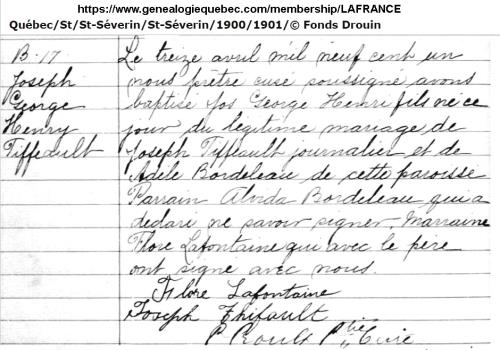 https://www.genealogiequebec.com/membership/LAFRANCE
Québec/St/St-Séverin/St-Séverin/1900/1901/© Fonds Drouin
B-17
Joseph
George
Henry
Tiffeault
Le treize avril mil neuf cent un
nous prêtre curé soussigné avons
baptisé Jos George Henri fils né ce
jour du légitime mariage de
Joseph Tiffeault journalier et de
Adele Bordeleau de cette paroisse
Parrain Alvida Bordeleau qui a
declaré ne savoir signer. Marraine
Flore Lafontaine qui avec le père
ont signé avec nous.
Flore Lafontaine
Joseph Thifault
Ptre Curé